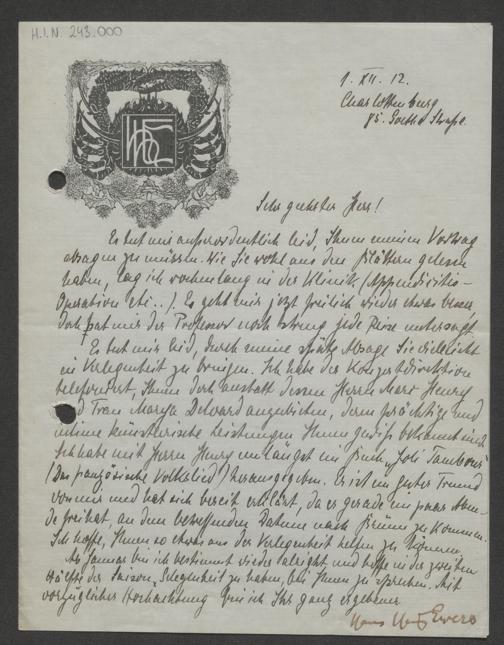 H.I.N. 243.000
1. XII. 12.
Charlottenburg
85. Goethe Strasse.
HHE
Sehr geehrter Herr!
Es tut mir ausserordentlich leid, Ihnen meinen Vortrag
absagen zu müssen. Wie Sie wohl aus den Blättern gelesen
haben, lag ich wochenlang in der Klinik (Appendicitis-
Operation etc..). Es geht mir jetzt freilich wieder etwas besser
doch hat mir der Professor noch streng jede Reise untersagt.
Es tut mir leid, durch meine späte Absage Sie vielleicht
in Verlegenheit zu bringen. Ich habe der Konzertdirektion
telefoniert, Ihnen doch anstatt dessen Herrn Marc Henry
und Frau Marya Delvard anzubieten, deren prächtige und
künstlerische Leistungen Ihnen gewiss bekannt sind.
Ich habe mit Herrn Henry unlängst ein Buch „Joli Tambour"
(Das französische Volkslied) herausgegeben. Er ist ein guter Freund
von mir und hat sich bereit erklärt, da er gerade ein paar Aben-
de frei hat, an dem betreffenden Datum nach Brünn zu kommen.
Ich hoffe, Ihnen so etwas aus der Verlegenheit helfen zu können.
Im Januar bin ich bestimmt wieder und hoffe in der zweiten
Hälfte der Saison, Gelegenheit zu haben, bei Ihnen zu sprechen. Mit
vorzüglicher Hochachtung bin ich Ihr ganz ergebener
Hanns Heinz Ewers